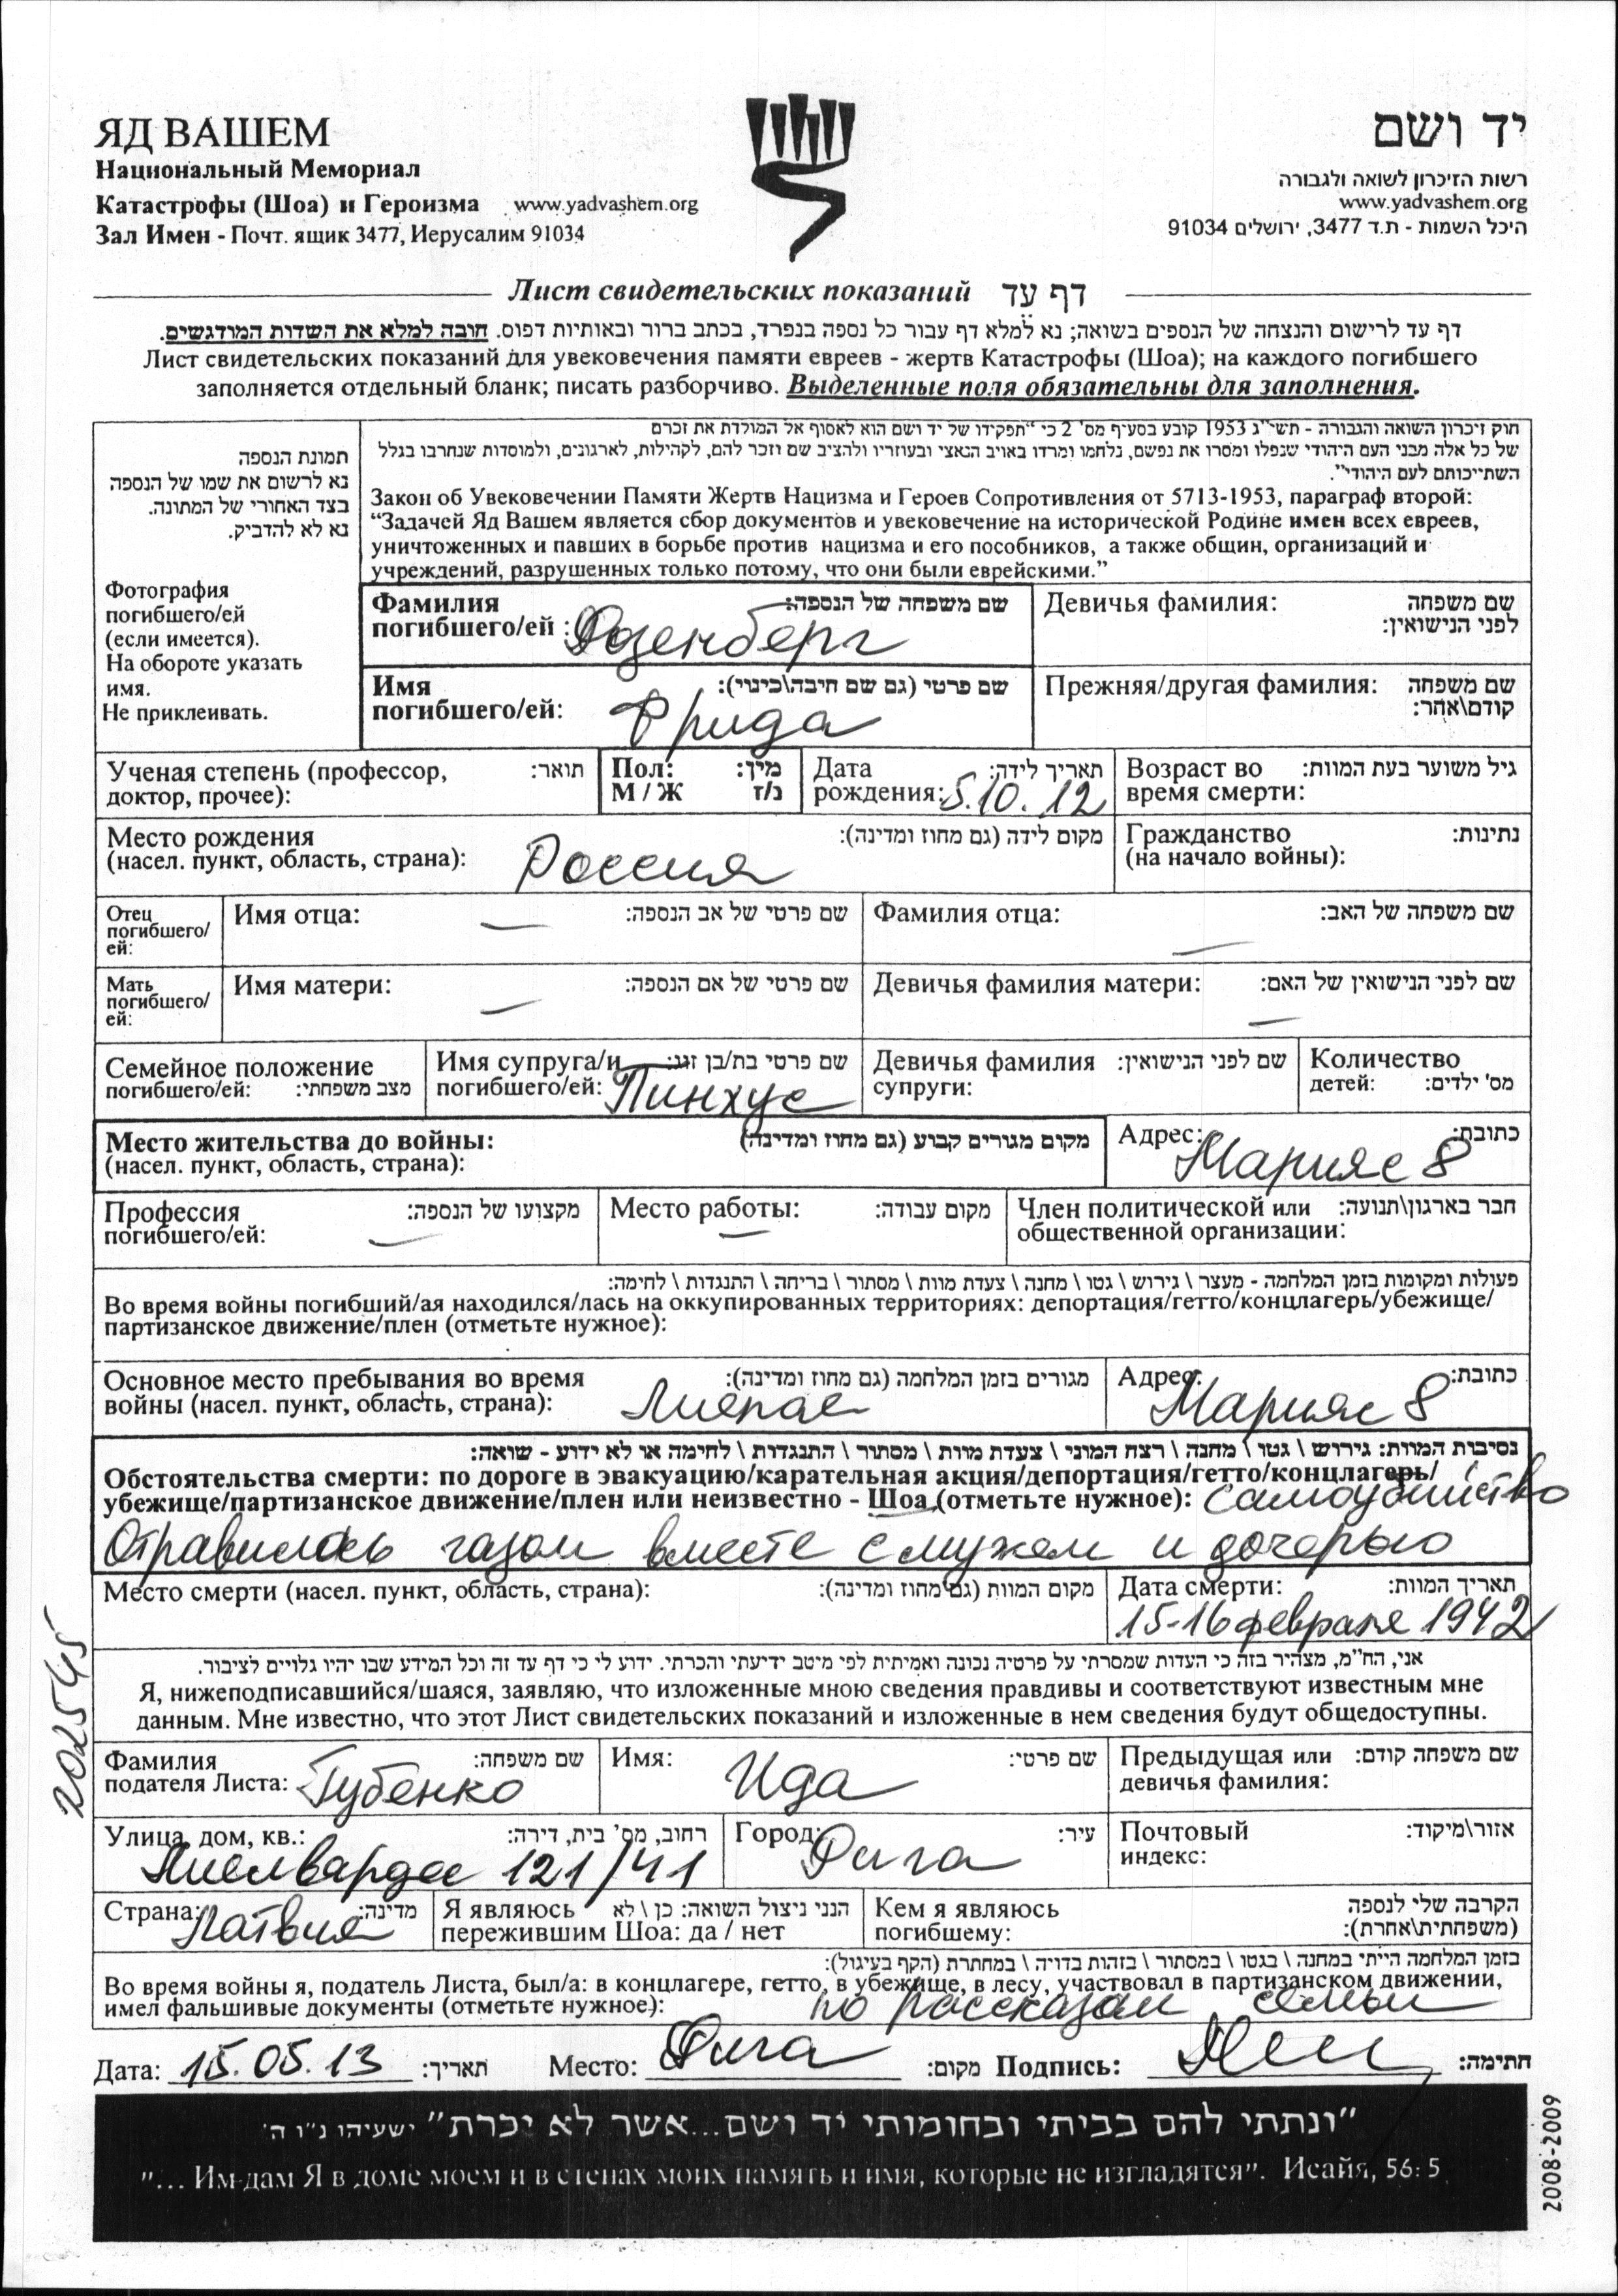 ЯД ВАШЕМ
Национальный Мемориал
Катастрофы (Шоа) и Героизма www.yadvashem.org
Зал Имен - Почт. ящик 3477, Иерусалим 91034
יד ושם
רשות הזיכרון לשואה ולגבורה
www.yadvashem.org
היכל השמות - ת.ד 3477, ירושלים 91034
Лист свидетельских показаний דף עד
דף עד לרישום והנצחה של הנספים בשואה; נא למלא דף עבור כל נספה בנפרד, בכתב ברור ובאותיות דפוס. חובה למלא את השדות המודגשים.
Лист свидетельских показаний для увековечения памяти евреев - жертв Катастрофы (Шоа); на каждого погибшего
заполняется отдельный бланк; писать разборчиво. Выделенные поля обязательны для заполнения.
תמונת הנספה
נא לרשום את שמו של הנספה
בצד האחורי של המתונה.
נא לא להדביק.
Фотография
погибшего/ей
(если имеется).
На обороте указать
имя.
Не приклеивать.
חוק זיכרון השואה והגבורה - תשי"ג 1953 קובע בסעיף מס' 2 כי "תפקידו של יד ושם הוא לאסוף אל המולדת את זכרם
של כל אלה מבני העם היהודי שנפלו ומסרו את נפשם, נלחמו ומרדו באויב הנאצי ובעוזריו ולהציב שם וזכר להם, לקהילות, לארגונים, ולמוסדות שנחרבו בגלל
השתייכותם לעם היהודי".
Закон об Увековечении Памяти Жертв Нацизма и Героев Сопротивления от 5713-1953, параграф второй:
“Задачей Яд Вашем является сбор документов и увековечение на исторической Родине имен всех евреев,
уничтоженных и павших в борьбе против нацизма и его пособников, а также общин, организаций и
учреждений, разрушенных только потому, что они были еврейскими.”
Фамилия שם משפחה של הנספה:
погибшего/ей : Розенберг
Девичья фамилия: שם משפחה
לפני הנישואין:
Имя שם פרטי (גם שם חיבה\כינוי):
погибшего/ей: Фрида
Прежняя/другая фамилия: שם משפחה
קודם\אחר:
Ученая степень (профессор, תואר:
доктор, прочее):
Пол: מין:
М / Ж ז/נ
Дата תאריך לידה:
рождения: 5.10.12
Возраст во גיל משוער בעת המוות:
время смерти:
Место рождения מקום לידה (גם מחוז ומדינה):
(насел. пункт, область, страна): Россия
Гражданство נתינות:
(на начало войны):
Отец
погибшего/
ей:
Имя отца: — שם פרטי של אב הנספה:
Фамилия отца: — שם משפחה של האב:
Мать
погибшего/
ей:
Имя матери: — שם פרטי של אם הנספה:
Девичья фамилия матери: — שם לפני הנישואין של האם:
Семейное положение
погибшего/ей: מצב משפחתי:
Имя супруга/и שם פרטי בת/בן זוג:
погибшего/ей: Пинхус
Девичья фамилия שם לפני הנישואין:
супруги:
Количество
детей: מס' ילדים:
Место жительства до войны: מקום מגורים קבוע (גם מחוז ומדינה)
(насел. пункт, область, страна):
Адрес: כתובת:
Марияс 8
Профессия מקצועו של הנספה:
погибшего/ей: —
Место работы: מקום עבודה:
—
Член политической или חבר בארגון\תנועה:
общественной организации:
פעולות ומקומות בזמן המלחמה - מעצר \ גירוש \ גטו \ מחנה \ צעדת מוות \ מסתור \ בריחה \ התנגדות \ לחימה:
Во время войны погибший/ая находился/лась на оккупированных территориях: депортация/гетто/концлагерь/убежище/
партизанское движение/плен (отметьте нужное):
Основное место пребывания во время מגורים בזמן המלחמה (גם מחוז ומדינה):
войны (насел. пункт, область, страна): Лиепае
Адрес: כתובת:
Марияс 8
נסיבות המוות: גירוש \ גטו \ מחנה \ רצח המוני \ צעדת מוות \ מסתור \ התנגדות \ לחימה או לא ידוע - שואה:
Обстоятельства смерти: по дороге в эвакуацию/карательная акция/депортация/гетто/концлагерь/
убежище/партизанское движение/плен или неизвестно - Шоа (отметьте нужное): самоубийство
Отравилась газом вместе с мужем и дочерью
Место смерти (насел. пункт, область, страна): מקום המוות (גם מחוז ומדינה):
Дата смерти: תאריך המוות:
15-16 февраля 1942
אני, הח"מ, מצהיר בזה כי העדות שמסרתי על פרטיה נכונה ואמיתית לפי מיטב ידיעתי והכרתי. ידוע לי כי דף עד זה וכל המידע שבו יהיו גלויים לציבור.
Я, нижеподписавшийся/шаяся, заявляю, что изложенные мною сведения правдивы и соответствуют известным мне
данным. Мне известно, что этот Лист свидетельских показаний и изложенные в нем сведения будут общедоступны.
Фамилия שם משפחה:
подателя Листа: Губенко
Имя: Ида שם פרטי:
Предыдущая или שם משפחה קודם:
девичья фамилия:
Улица, дом, кв.: רחוב, מס' בית, דירה:
121/41
Город: Рига עיר:
Почтовый אזור\מיקוד:
индекс:
Страна: Латвия מדינה:
Я являюсь הנני ניצול השואה: כן \ לא
пережившим Шоа: да / нет
Кем я являюсь הקרבה שלי לנספה
погибшему: (משפחתית\אחרת):
בזמן המלחמה הייתי במחנה \ בגטו \ במסתור \ בזהות בדויה \ במחתרת (הקף בעיגול):
Во время войны я, податель Листа, был/а: в концлагере, гетто, в убежище, в лесу, участвовал в партизанском движении,
имел фальшивые документы (отметьте нужное): по рассказам семьи
Дата: 15.05.13 תאריך: Место: Рига מקום: Подпись: חתימה:
"ונתתי להם בביתי ובחומותי יד ושם...אשר לא יכרת" ישעיהו נ"ו ה'
"... Им дам Я в доме моем и в стенах моих память и имя, которые не изгладятся". Исайя, 56: 5
202545
2008-2009